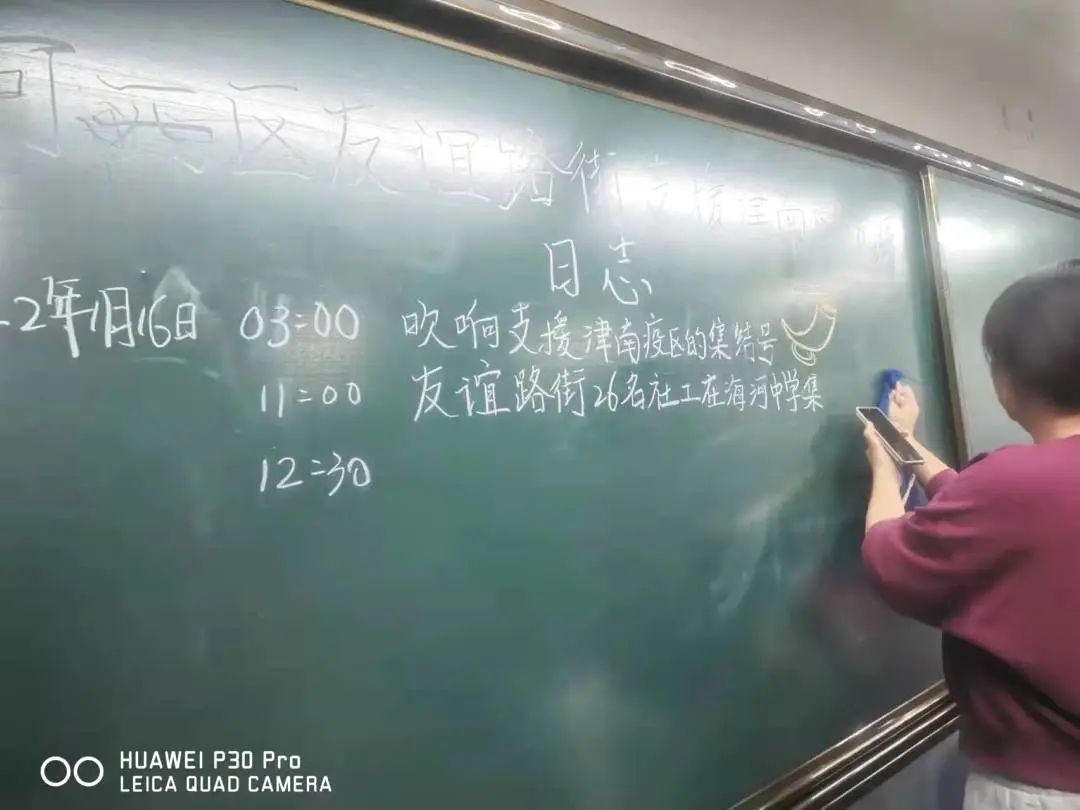 河西区友谊路街支援津南
日志
2年1月16日 03:00 吹响支援津南疫区的集结号
11:00 友谊路街26名社工在海河中学集
12:30
HUAWEI P30 Pro
LEICA QUAD CAMERA